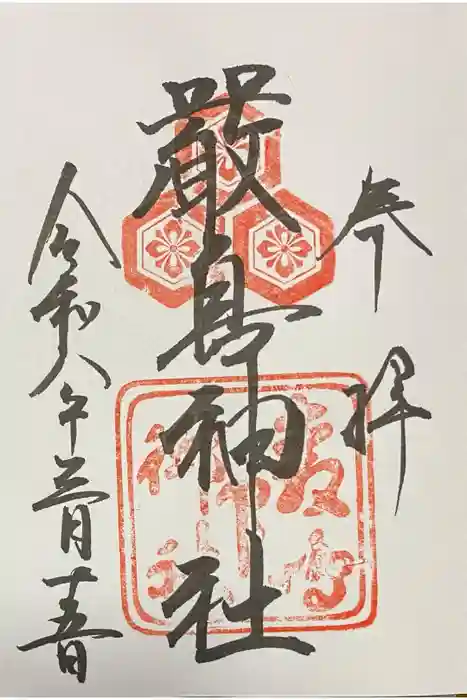 奉拝
嚴島神社
令和八年三月十五日